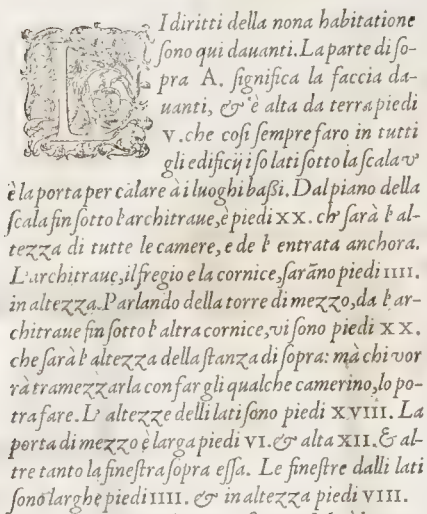 I diritti della nona habitatione
ſono qui dauanti. La parte di ſo-
pra A. ſignifica la faccia da-
uanti, & è alta da terra piedi
V. che coſi ſempre faro in tutti
gli edificij iſolati ſotto la ſcala v
è la porta per calare à i luoghi baſſi. Dal piano della
ſcala fin ſotto l'architraue, è piedi XX. ch' ſarà l'al-
tezza di tutte le camere, e de l' entrata anchora.
L'architraue, il fregio e la cornice, ſarãno piedi IIII.
in altezza. Parlando della torre di mezzo, da l'ar-
chitraue fin ſotto l'altra cornice, vi ſono piedi XX.
che ſarà l'altezza della ſtanza di ſopra: mà chi vor
rà tramezzarla con far gli qualche camerino, lo po-
tra fare. L' altezze delli lati ſono piedi XVIII. La
porta di mezzo è larga piedi VI. & alta XII. & al-
tre tanto la fineſtra ſopra eſſa. Le fineſtre dalli lati
ſono larghe piedi IIII. & in altezza piedi VIII.